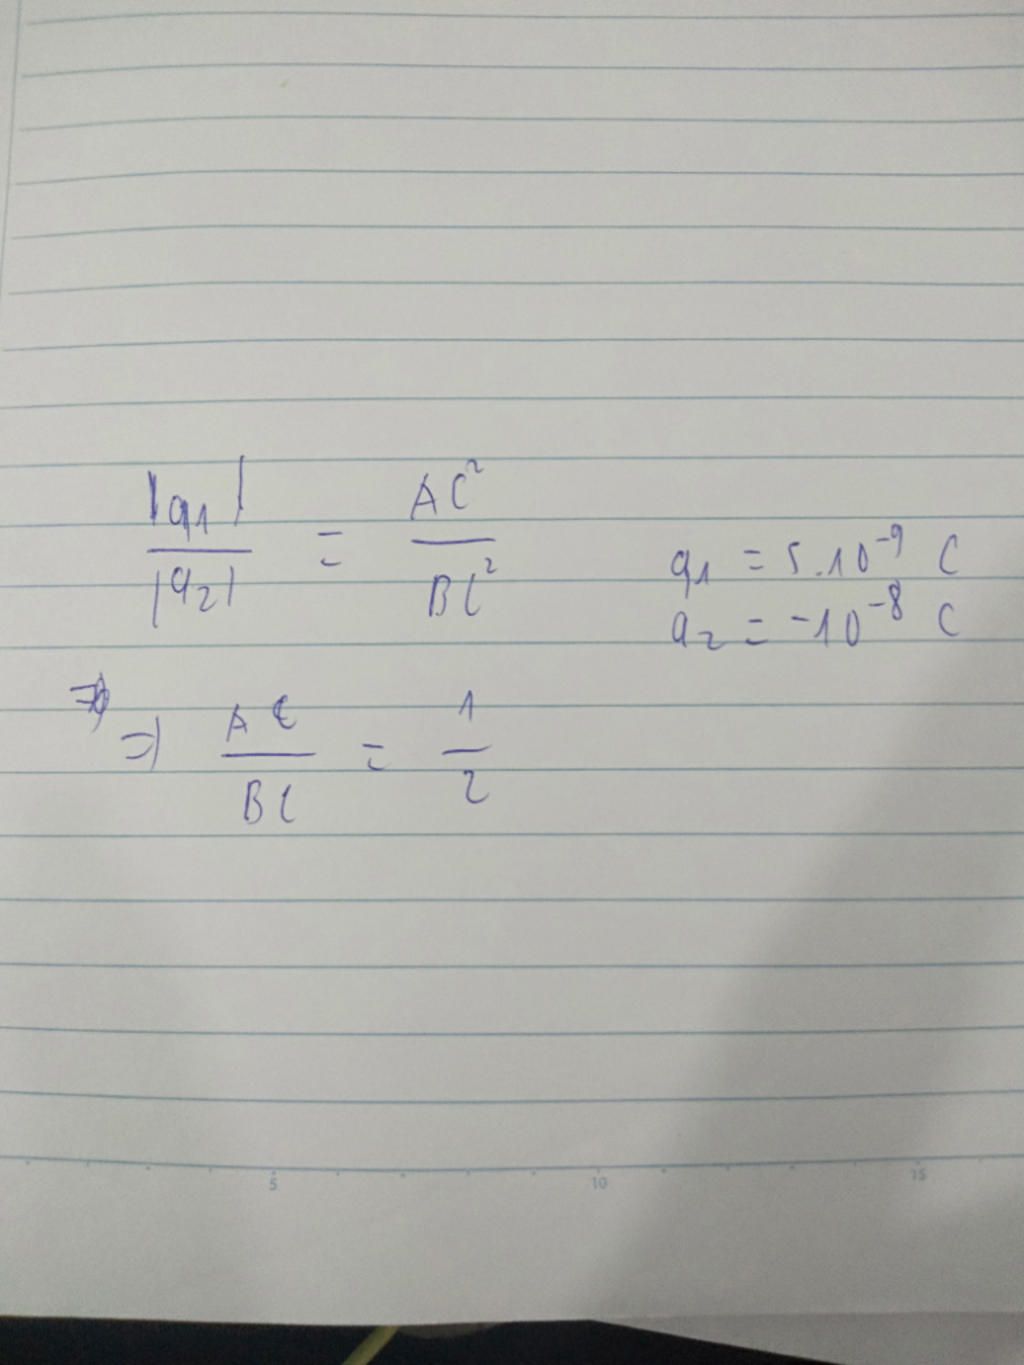 |q₁| / |q₂| = AC² / BC²
q₁ = 5.10⁻⁹ C
q₂ = -10⁻⁸ C
=> AC / BC = 1 / 2
5 10 15